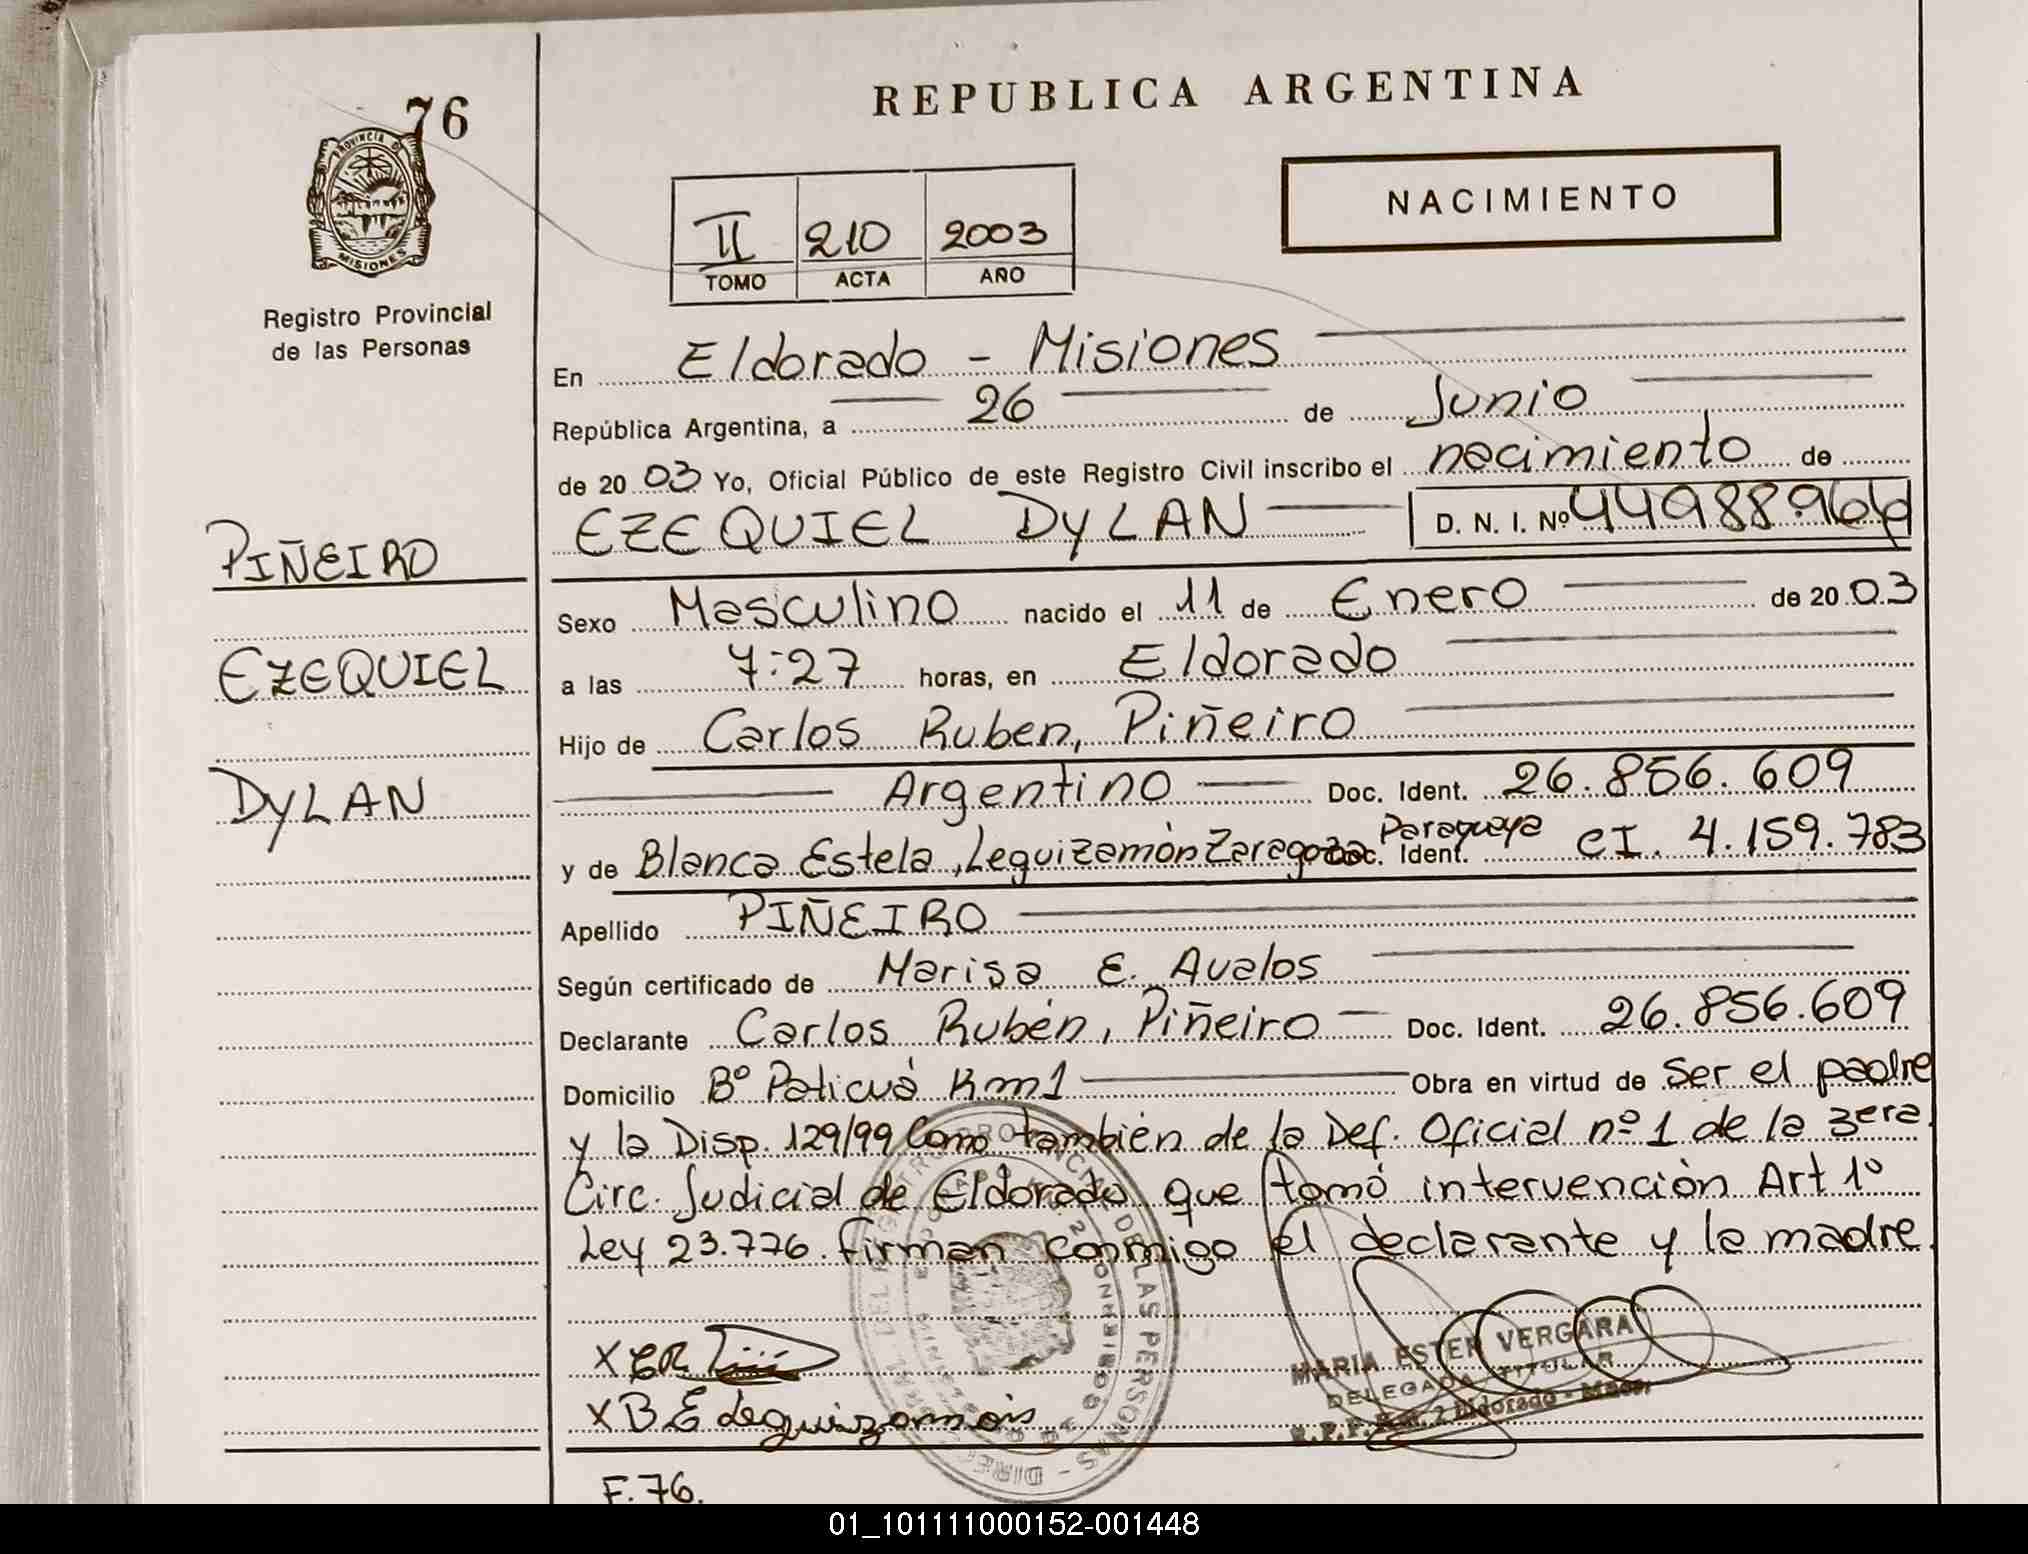 76
PROVINCIA DE
MISIONES
Registro Provincial
de las Personas
PIÑEIRO
EZEQUIEL
DYLAN
REPUBLICA ARGENTINA
II 210 2003
TOMO ACTA AÑO
NACIMIENTO
En Eldorado - Misiones
República Argentina, a 26 de Junio
de 2003 Yo, Oficial Público de este Registro Civil inscribo el nacimiento de
EZEQUIEL DYLAN D. N. I. Nº 44988966
Sexo Masculino nacido el 11 de Enero de 2003
a las 7:27 horas, en Eldorado
Hijo de Carlos Ruben, Piñeiro
Argentino Doc. Ident. 26.856.609
y de Blanca Estela, Leguizamón Zaragoza Paraguaya Doc. Ident. CI. 4.159.783
Apellido PIÑEIRO
Según certificado de Marisa E. Avalos
Declarante Carlos Rubén, Piñeiro Doc. Ident. 26.856.609
Domicilio Bº Paticuá Km1 Obra en virtud de ser el padre
y la Disp. 129/99 Como también de la Def. Oficial nº 1 de la 3era.
Circ. Judicial de Eldorado que tomó intervención Art 1º
Ley 23.776. firman conmigo el declarante y la madre.
X CR
X B E Leguizamón
MARIA ESTER VERGARA
DELEGADA TITULAR
R.P.P. 2 Eldorado - Mnes.
F. 76.
01_101111000152-001448